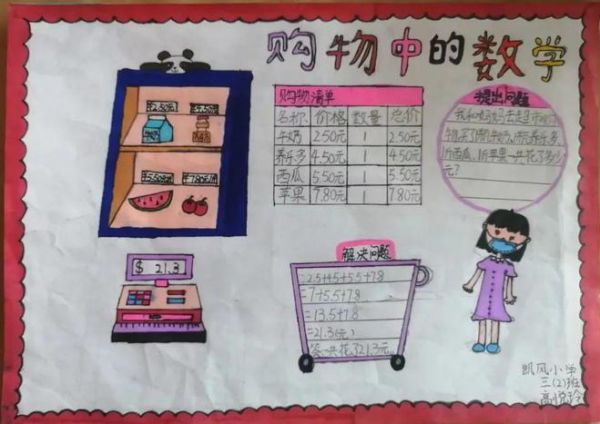 购物中的数学
购物清单
名称 价格 数量 总价
牛奶 2.50元 1 2.50元
养乐多 4.50元 1 4.50元
西瓜 5.50元 1 5.50元
苹果 7.80元 1 7.80元
提出问题
我和妈妈去
养乐多、
1斤西瓜、1斤苹果一共花了多少
元?
$ 21.3
解决问题
2.5+4.5+5.5+7.8
=7+5.5+7.8
=13.5+7.8
=21.3(元)
答:一共花了21.3元
凯风小学
三(2)班
高悦玲